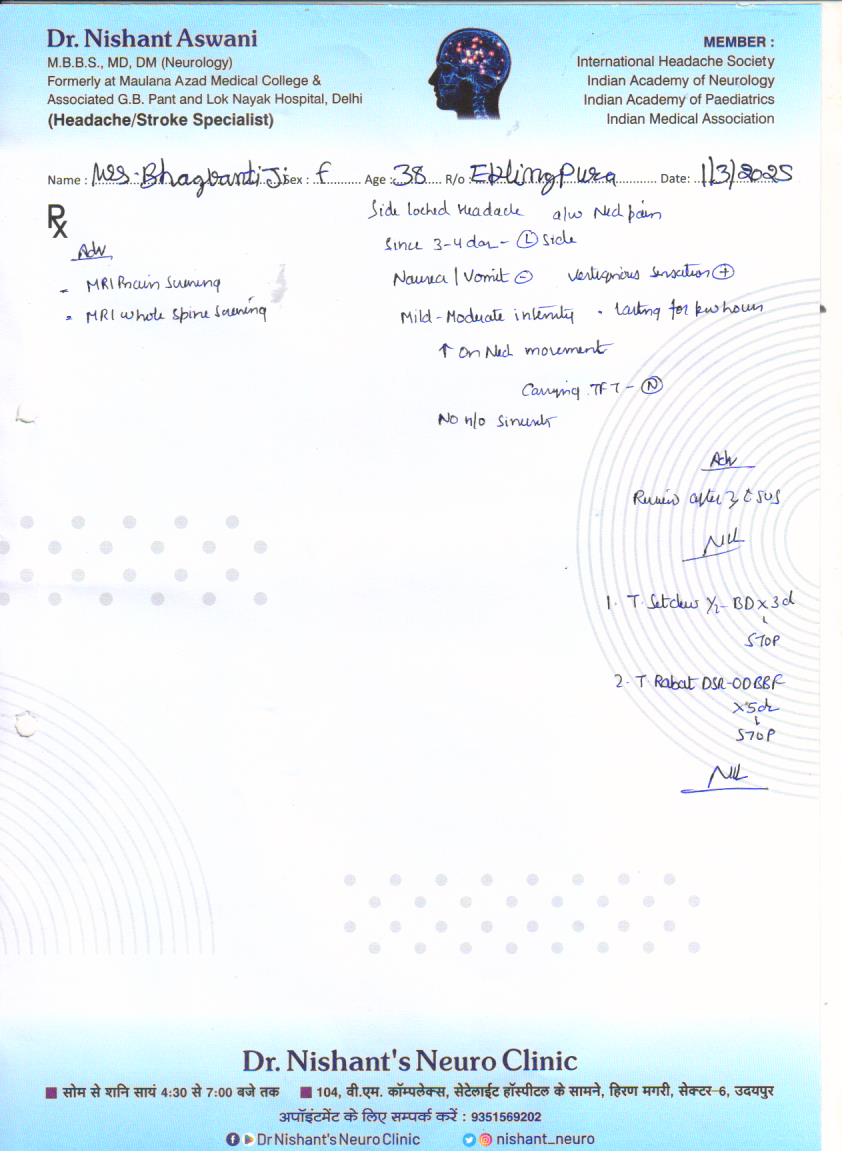 Dr. Nishant Aswani
M.B.B.S., MD, DM (Neurology)
Formerly at Maulana Azad Medical College &
Associated G.B. Pant and Lok Nayak Hospital, Delhi
(Headache/Stroke Specialist)
MEMBER :
International Headache Society
Indian Academy of Neurology
Indian Academy of Paediatrics
Indian Medical Association
Name : Mrs. Bhagvanti Ji Sex : F Age : 38 R/o : Eklingpura Date: 1/3/2025
Rx
Adv
- MRI Brain Screening
- MRI whole Spine Screening
Side locked Headache a/w Neck pain
Since 3-4 (L) Side
Nausea / Vomit (-) Vertiginous sensation (+)
Mild - Moderate intensity lasting for few hours
↑ On Neck movement
Carrying TFT - (N)
No h/o Sinusitis
Adv
Review after SOS
1. T. ½ - BD x 3d
↓
STOP
2. T. DSR - OD BBF
x 5d
↓
STOP
Dr. Nishant's Neuro Clinic
सोम से शनि सायं 4:30 से 7:00 बजे तक 104, वी.एम. कॉम्पलेक्स, सेटेलाईट हॉस्पीटल के सामने, हिरण मगरी, सेक्टर-6, उदयपुर
अपॉइंटमेंट के लिए सम्पर्क करें : 9351569202
Dr Nishant's Neuro Clinic nishant_neuro